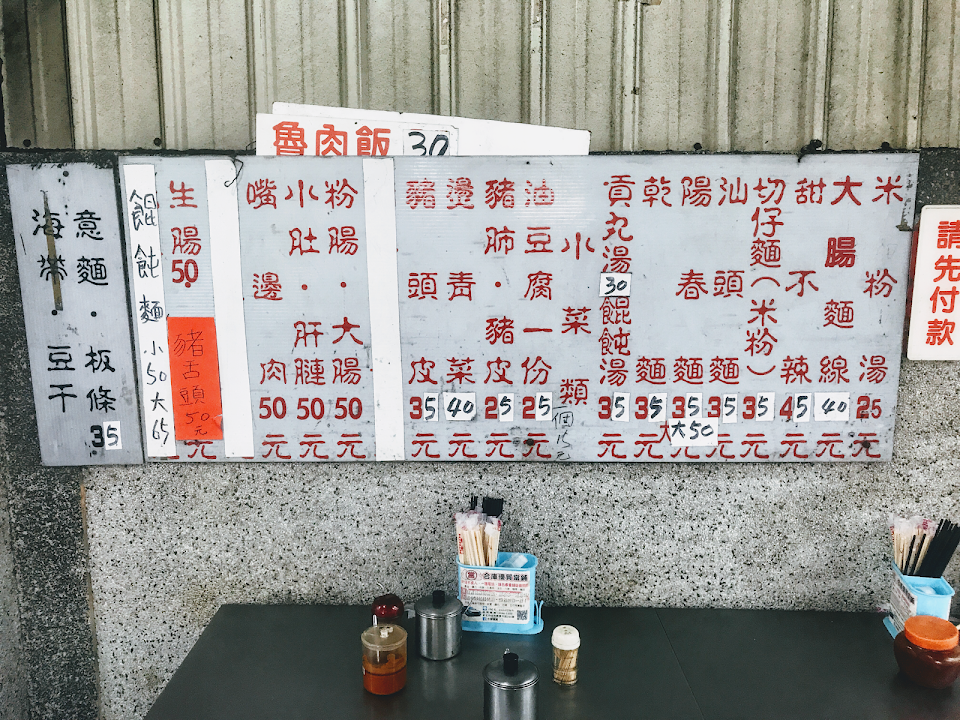 魯肉飯 30
請先付款
米粉湯 25元
大腸麵線 40元
甜不辣 45元
切仔麵(米粉) 35元
汕頭麵 35元
陽春麵 35元 大50
乾麵 35元
貢丸湯 30 餛飩湯 35元
小菜類 個15元
油豆腐一份 25元
豬肺・豬皮 25元
燙青菜 40元
豬頭皮 35元
粉腸・大腸 50元
小肚・肝 50元
嘴邊肉 50元
生腸 50 元
豬舌頭 50元
餛飩麵 小50 大65
意麵・板條 35
海帶 豆干